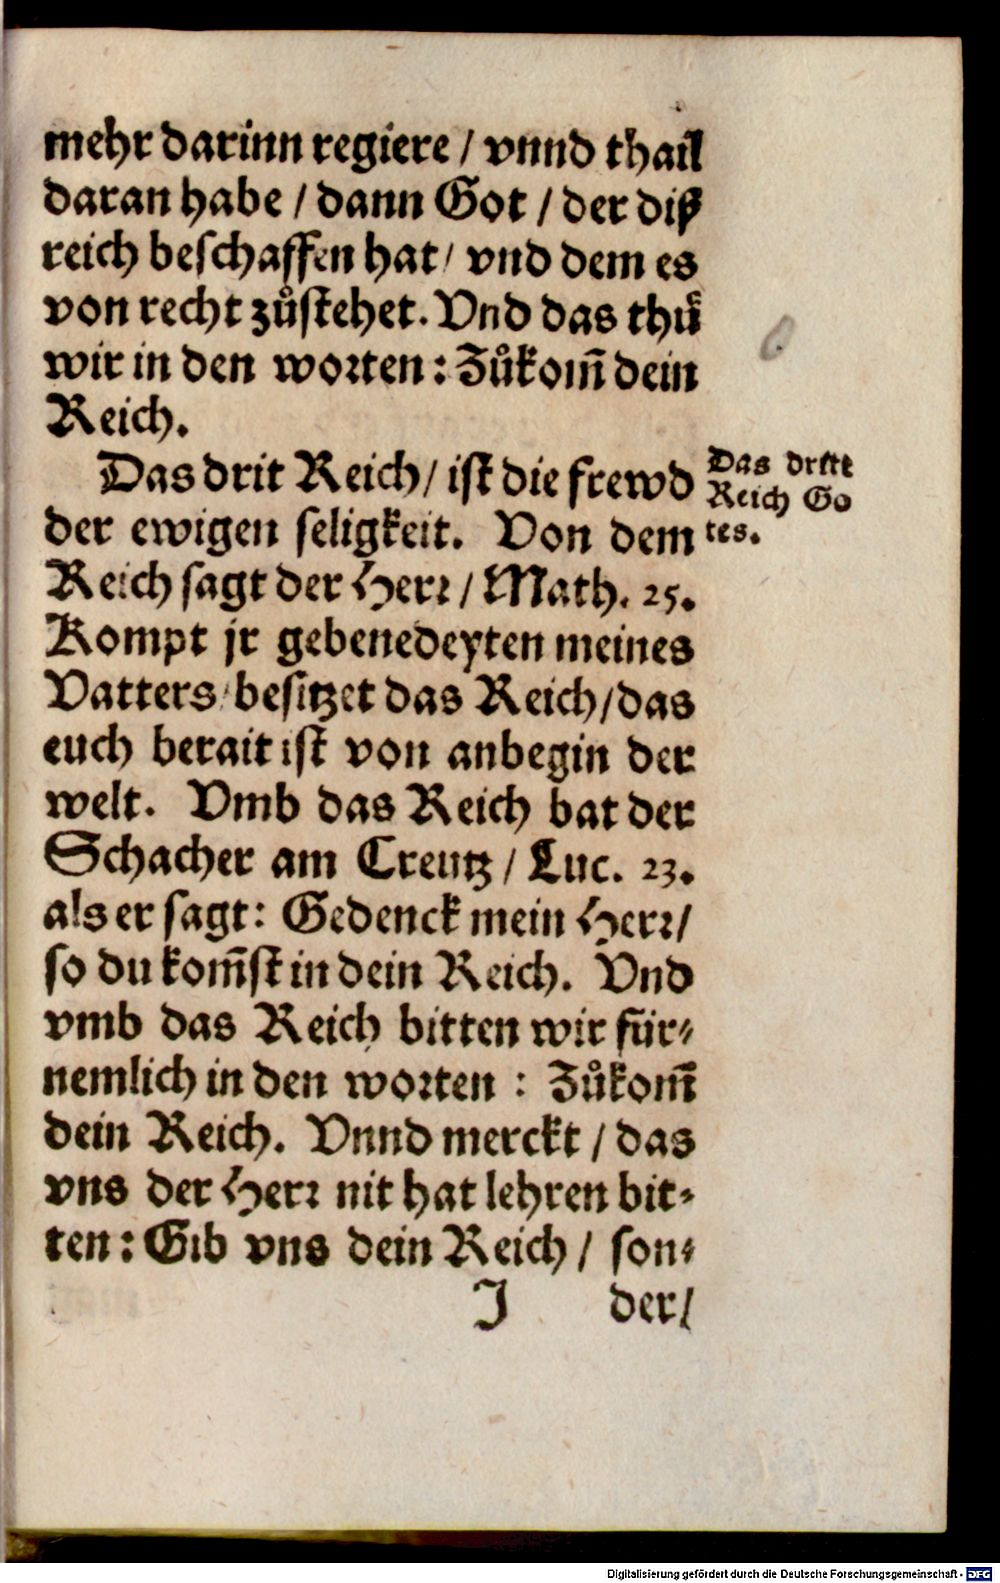 mehr darinn regiere / vnnd thail
daran habe / dann Got / der diß
reich beschaffen hat / vnd dem es
von recht zůstehet. Vnd das thů
wir in den worten: Zůkom̃ dein
Reich.
Das drit Reich / ist die frewd
der ewigen seligkeit. Von dem
Reich sagt der Herr / Math. 25.
Kompt jr gebenedeyten meines
Vatters / besitzet das Reich / das
euch berait ist von anbegin der
welt. Vmb das Reich bat der
Schacher am Creutz / Luc. 23.
als er sagt: Gedenck mein Herr /
so du kom̃st in dein Reich. Vnd
vmb das Reich bitten wir für-
nemlich in den worten : Zůkom̃
dein Reich. Vnnd merckt / das
vns der Herr nit hat lehren bit-
ten: Gib vns dein Reich / son-
J der /
Das dritt
Reich Go
tes.
Digitalisierung gefördert durch die Deutsche Forschungsgemeinschaft - DFG